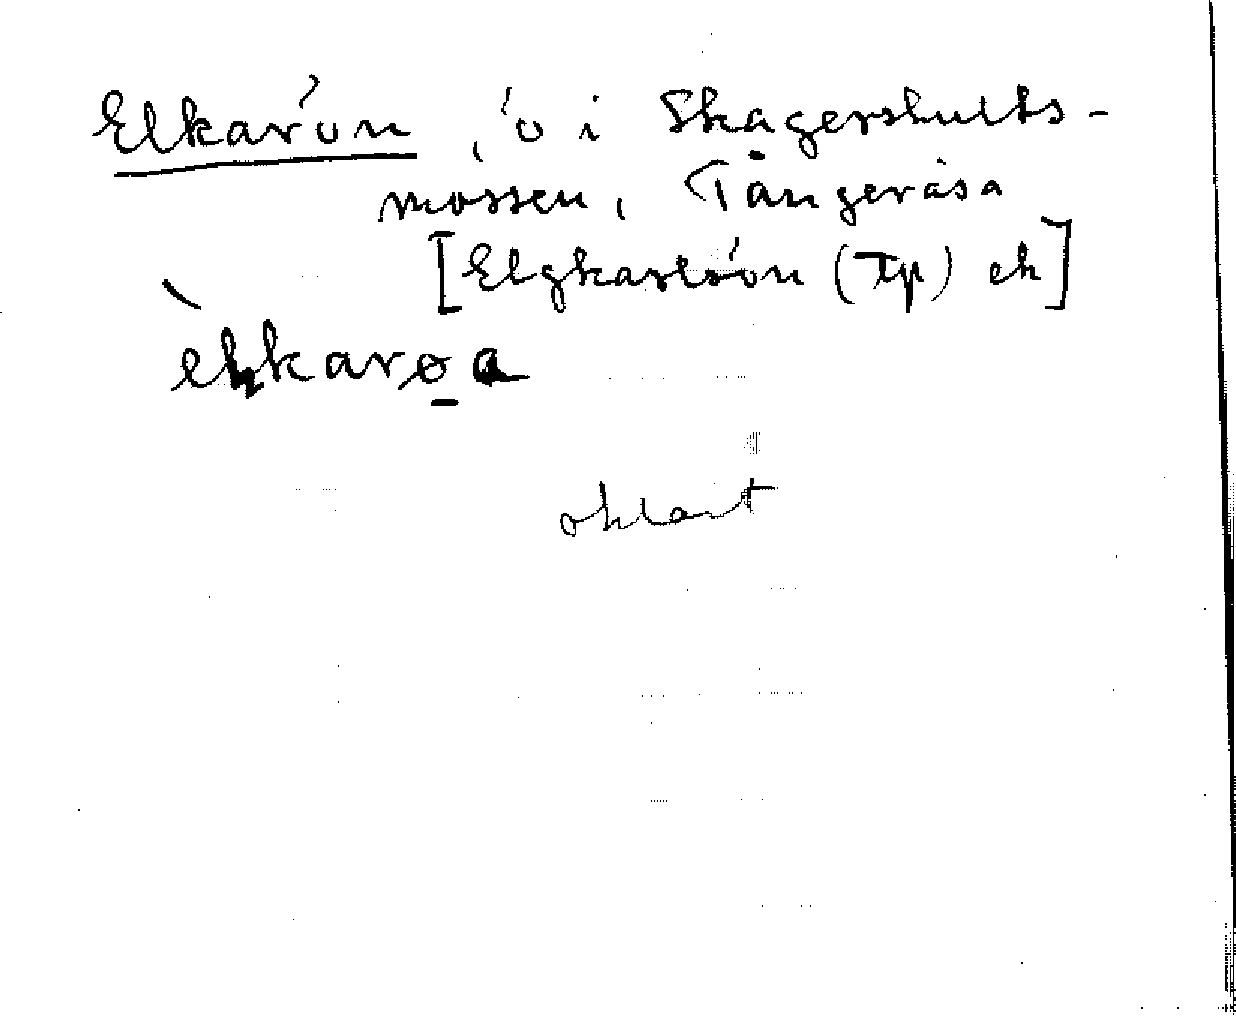 Elkarön, ö i Skagershults-
mossen, Tångeråsa
[Elgkarlsön (Tp) ek]
oklart